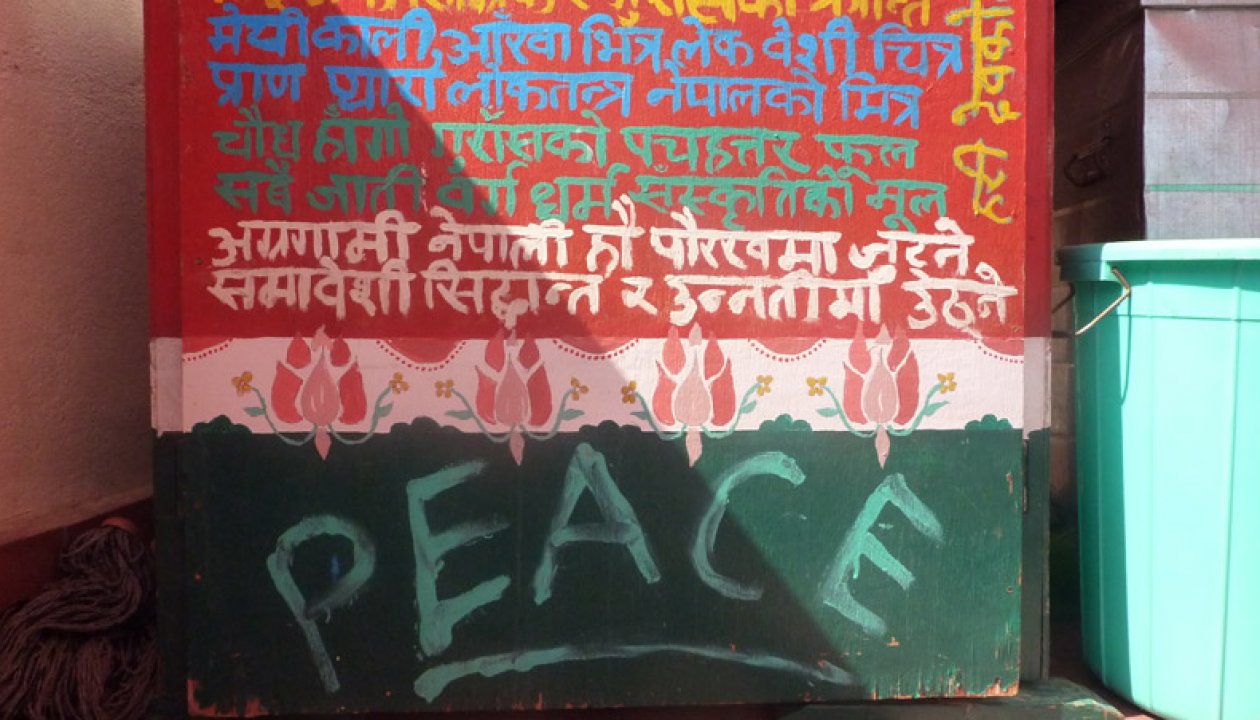 मेची काली आँखा भित्र लेक वेशी चित्र
प्राण प्यारो लोकतन्त्र नेपालको मित्र
चौध हाँगो गुराँसको पचहत्तर फूल
सबै जाती वर्ग धर्म सँस्कृतिको मूल
अग्रगामी नेपाली हौ पौरखमा जुट्ने
समावेशी सिद्धान्त र उन्नतीमाँ उठ्ने
PEACE